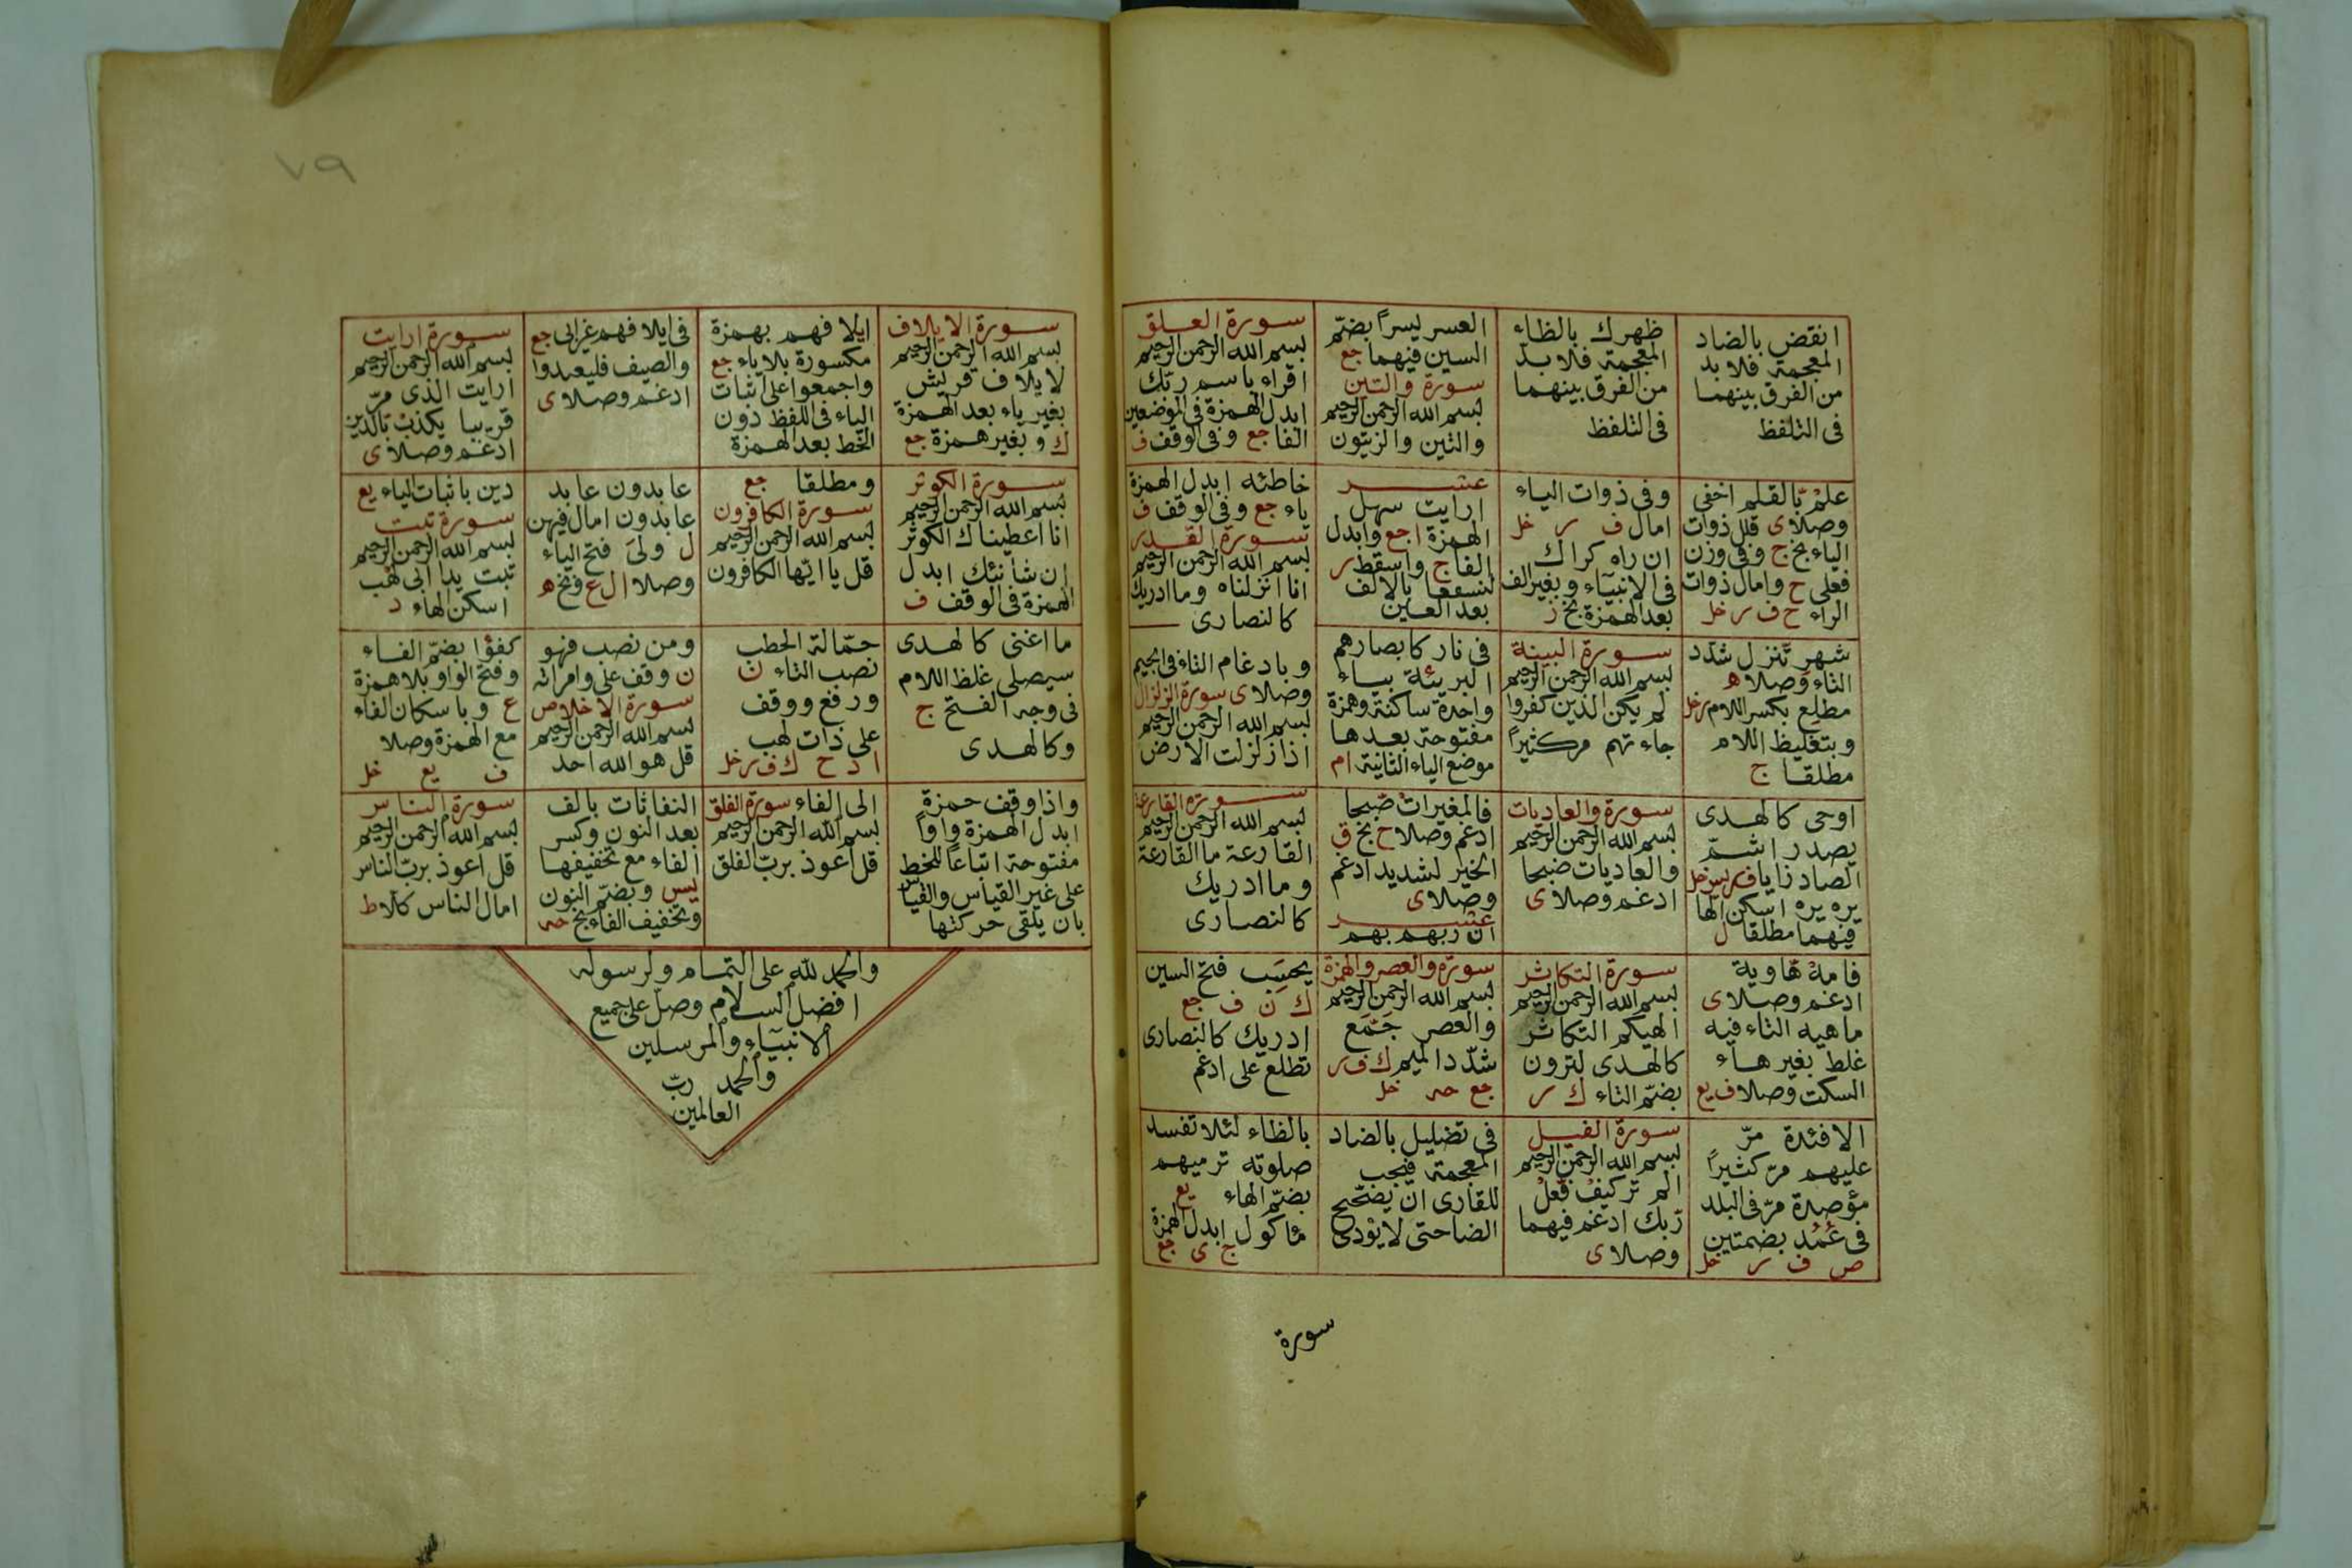 انقض بالضاد
المعجمة فلا بد
من الفرق بينهما
فى التلفظ
ظهرك بالظاء
المعجمة فلا بدّ
من الفرق بينهما
فى التلفظ
العسر يسراً بضمّ
السين فيهما جع
سورة والتين
بسم الله الرحمن الرحيم
والتين والزيتون
سورة العلق
بسم الله الرحمن الرحيم
اقراء باسم ربّك
ابدل الهمزة فى الموضعين
الفا جع وفى الوقف ف
علمْ بّالقلم اخفى
وصلا ى قلل ذوات
الياء بخ ج وفى وزن
فعلى ح وامال ذوات
الراء ح ف ر خل
وفى ذوات الياء
امال ف ر خل
ان راه كراك
فى الانبيآء وبغير الف
بعد الهمزة بخ ز
عشر
ارايت سهل
الهمزة ا جع وابدل
الفا ج واسقط ر
لنسفعا بالالف
بعد العين
خاطئه ابدل الهمزة
ياء جع وفى الوقف ف
سورة القدر
بسم الله الرحمن الرحيم
انا انزلناه وما ادريك
كالنصارى
شهرٍ تّنزل شدّد
التاء وصلا ه
مطلِع بكسر اللام ر خل
وبتغليظ اللام
مطلقا ج
سورة البينة
بسم الله الرحمن الرحيم
لم يكن الذين كفروا
جاءتهم مر كثيراً
فى نار كابصارهم
البريئة بياء
واحدة ساكنة وهمزة
مفتوحة بعدها
موضع الياء الثانية ام
وبادغام التاء فى الجيم
وصلا ى سورة الزلزال
بسم الله الرحمن الرحيم
اذا زلزلت الارض
اوحى كالهدى
يصدر اشمّ
الصاد زايا ف ر يس خل
يره يره اسكن الها
فيهما مطلقا ل
سورة والعاديات
بسم الله الرحمن الرحيم
والعاديات ضبحا
ادغم وصلا ى
فالمغيرات صّبحا
ادغم وصلا ح بخ ق
الخير لشديد ادغم
وصلا ى
عشر
ان ربهم بهم
سورة القارعة
بسم الله الرحمن الرحيم
القارعة ما القارعة
وما ادريك
كالنصارى
فامهْ هّاوية
ادغم وصلا ى
ما هيه التاء فيه
غلط بغير هاء
السكت وصلا ف يع
سورة التكاثر
بسم الله الرحمن الرحيم
الهيكم التكاثر
كالهدى لترون
بضمّ التاء ك ر
سورة والعصر والهمزة
بسم الله الرحمن الرحيم
والعصر جَمَّع
شدّد الميم ك ف ر
جع حه خل
يحسَب فتح السين
ك ن ف جع
ادريك كالنصارى
تطلع على ادغم
الافئدة مرّ
عليهم مرّ كثيراً
مؤصدة مرّ فى البلد
فى عُمُد بضمتين
ص ف ر خل
سورة الفيل
بسم الله الرحمن الرحيم
الم تر كيفْ فّعلْ
رّبك ادغم فيهما
وصلا ى
فى تضليل بالضاد
المعجمة فيجب
للقارى ان يضحّح
الضا حتى لا يؤدى
بالظاء لئلا تفسد
صلوته ترميهم
بضمّ الهاء يع
مأكول ابدل الهمزة
ج ى جع
سورة
٧٩
سورة الايلاف
بسم الله الرحمن الرحيم
لايلاف قريش
بغير ياء بعد الهمزة
ك وبغير همزة جع
ايلافهم بهمزة
مكسورة بلا ياء جع
واجمعوا على اثبات
الياء فى اللفظ دون
الخّط بعد الهمزة
فى ايلافهم غير ابى جع
والصيف فليعبدوا
ادغم وصلا ى
سورة ارايت
بسم الله الرحمن الرحيم
ارايت الذى مرّ
قريبا يكذبْ بّالدين
ادغم وصلا ى
سورة الكوثر
بسم الله الرحمن الرحيم
انا اعطيناك الكوثر
ان شانئك ابدل
الهمزة فى الوقف ف
ومطلقا جع
سورة الكافرون
بسم الله الرحمن الرحيم
قل يا ايّها الكافرون
عابدون عابد
عابدون امال فيهن
ل ولىَ فتح الياء
وصلا ا ل ع وتخ ه
دين باثبات الياء يع
سورة تبت
بسم الله الرحمن الرحيم
تبت يدا ابى لهْب
اسكن الهاء د
ما اغنى كالهدى
سيصلى غلظ اللام
فى وجه الفتح ج
وكالهدى
حمّالة الحطب
نصب التاء ن
ورفع ووقف
على ذات لهب
ا د ح ك ف ر خل
ومن نصب فهو
ن وقف على وامراته
سورة الاخلاص
بسم الله الرحمن الرحيم
قل هو الله احد
كفؤا بضمّ الفاء
وفتح الواو بلا همزة
ع وباسكان الفاء
مع الهمزة وصلا
ف يع خل
واذا وقف حمزة
ابدل الهمزة واواً
مفتوحة اتباعاً للخط
على غير القياس والقياس
بان يلقى حركتها
الى الفاء سورة الفلق
بسم الله الرحمن الرحيم
قل اعوذ بربّ الفلق
النفاثات بالف
بعد النون وكسر
الفاء مع تخفيفها
يس وبضمّ النون
وتخفيف الفاء بخ حه
سورة الناس
بسم الله الرحمن الرحيم
قل اعوذ بربّ الناس
امال الناس كلا ط
والحمد لله على التمام ولرسوله
افضل السلام وصلّ على جميع
الانبيآء والمرسلين
والحمد ربّ
العالمين